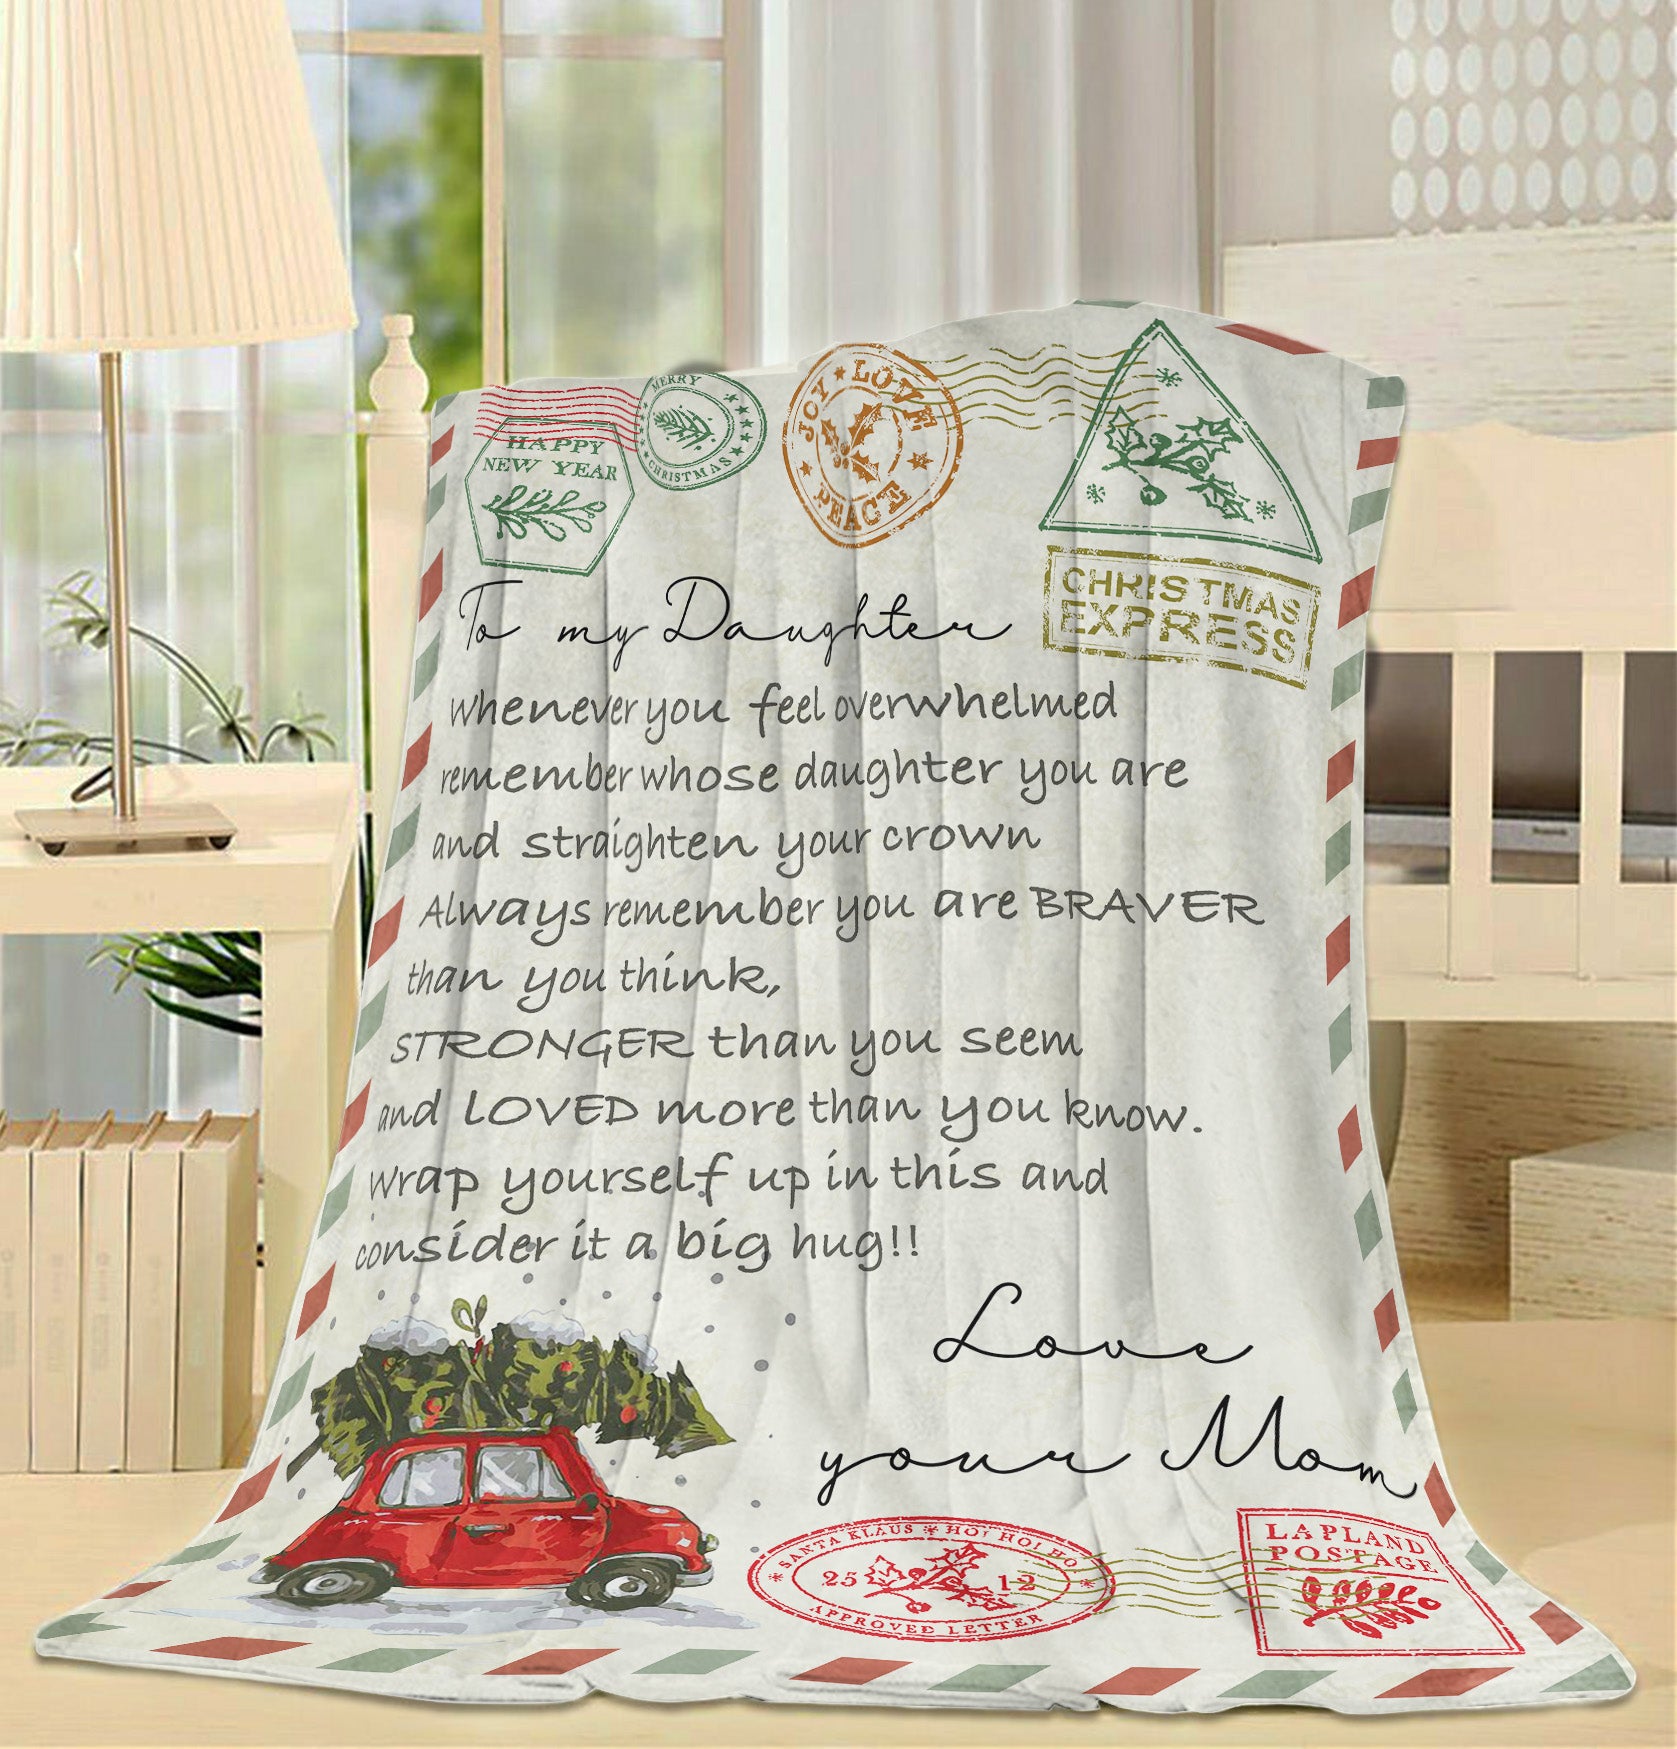 HAPPY
NEW YEAR
MERRY
CHRISTMAS
JOY ★ LOVE
PEACE
CHRISTMAS
EXPRESS
To my Daughter
Whenever you feel overwhelmed
remember whose daughter you are
and straighten your crown
Always remember you are BRAVER
than you think,
STRONGER than you seem
and LOVED more than you know.
Wrap yourself up in this and
consider it a big hug!!
Love
your Mom
SANTA KLAUS * HO! HO! HO
25 12
APPROVED LETTER
LAPLAND
POSTAGE